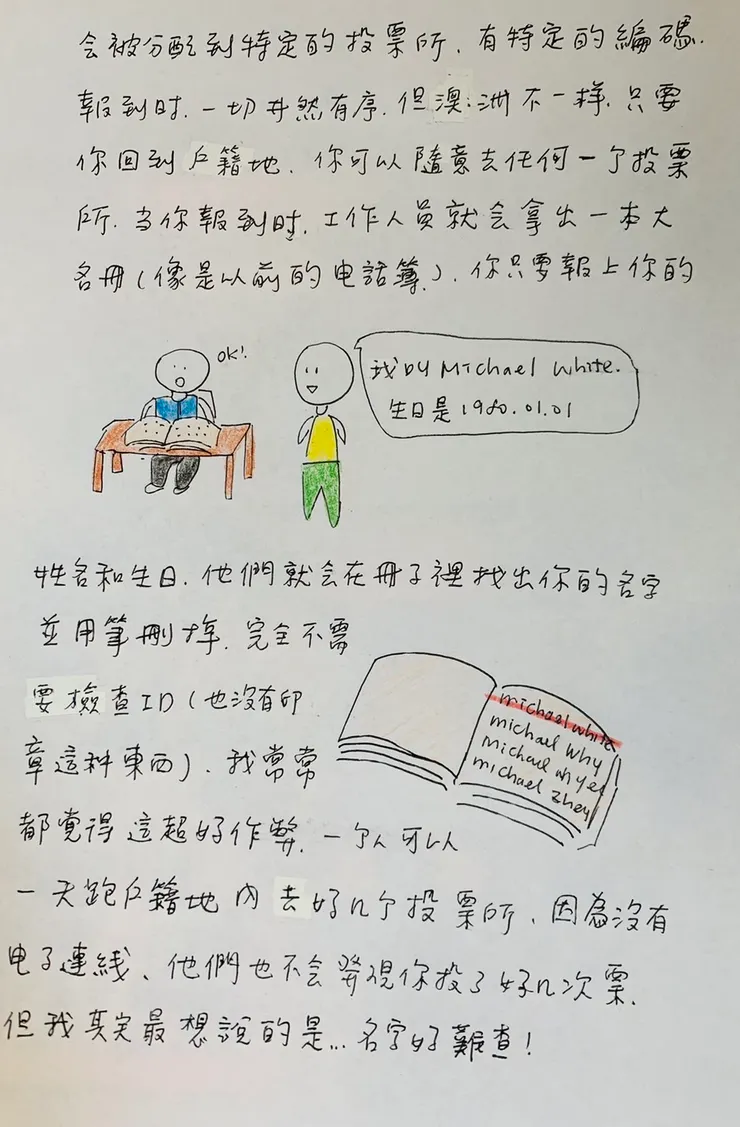 会被分配到特定的投票所，有特定的編碼.
報到时. 一切井然有序. 但澳洲不一样. 只要
你回到戶籍地、你可以隨意去任何一个投票
所. 当你報到时. 工作人員就会拿出一本大
名冊(像是以前的电話簿). 你只要報上你的
OK!
我叫 Michael White.
生日是 1980.01.01
姓名和生日. 他們就会在冊子裡找出你的名字
並用筆刪掉. 完全不需
要檢查ID(也沒有印
章這种東西)、我常常
都覺得這超好作弊. 一个人可以
一天跑戶籍地內去好几个投票所、因為沒有
电子連线、他們也不会發現你投了好几次票.
但我其实最想說的是... 名字好難查!
michael white
michael why
michael
michael zhey